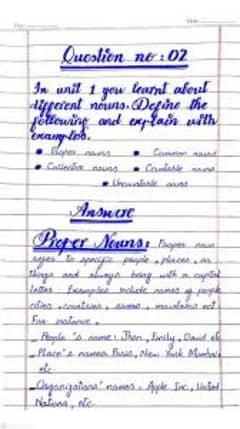 Question no : 02
In unit 1 you learnt about
different nouns. Define the
following and explain with
examples.
• Proper nouns • Common nouns
• Collective nouns • Countable nouns
• Uncountable nouns
Answere
Proper Nouns: Proper noun
refers to specific people, places, or
things and always being with a capital
letter. Examples include names of people,
cities, countries, rivers, mountains ect
For instance,
People's name: Jhon, Emily, David etc
Place's names Paris, New York Mumbai
etc
Organizations' names: Apple Inc, United
Nations, etc